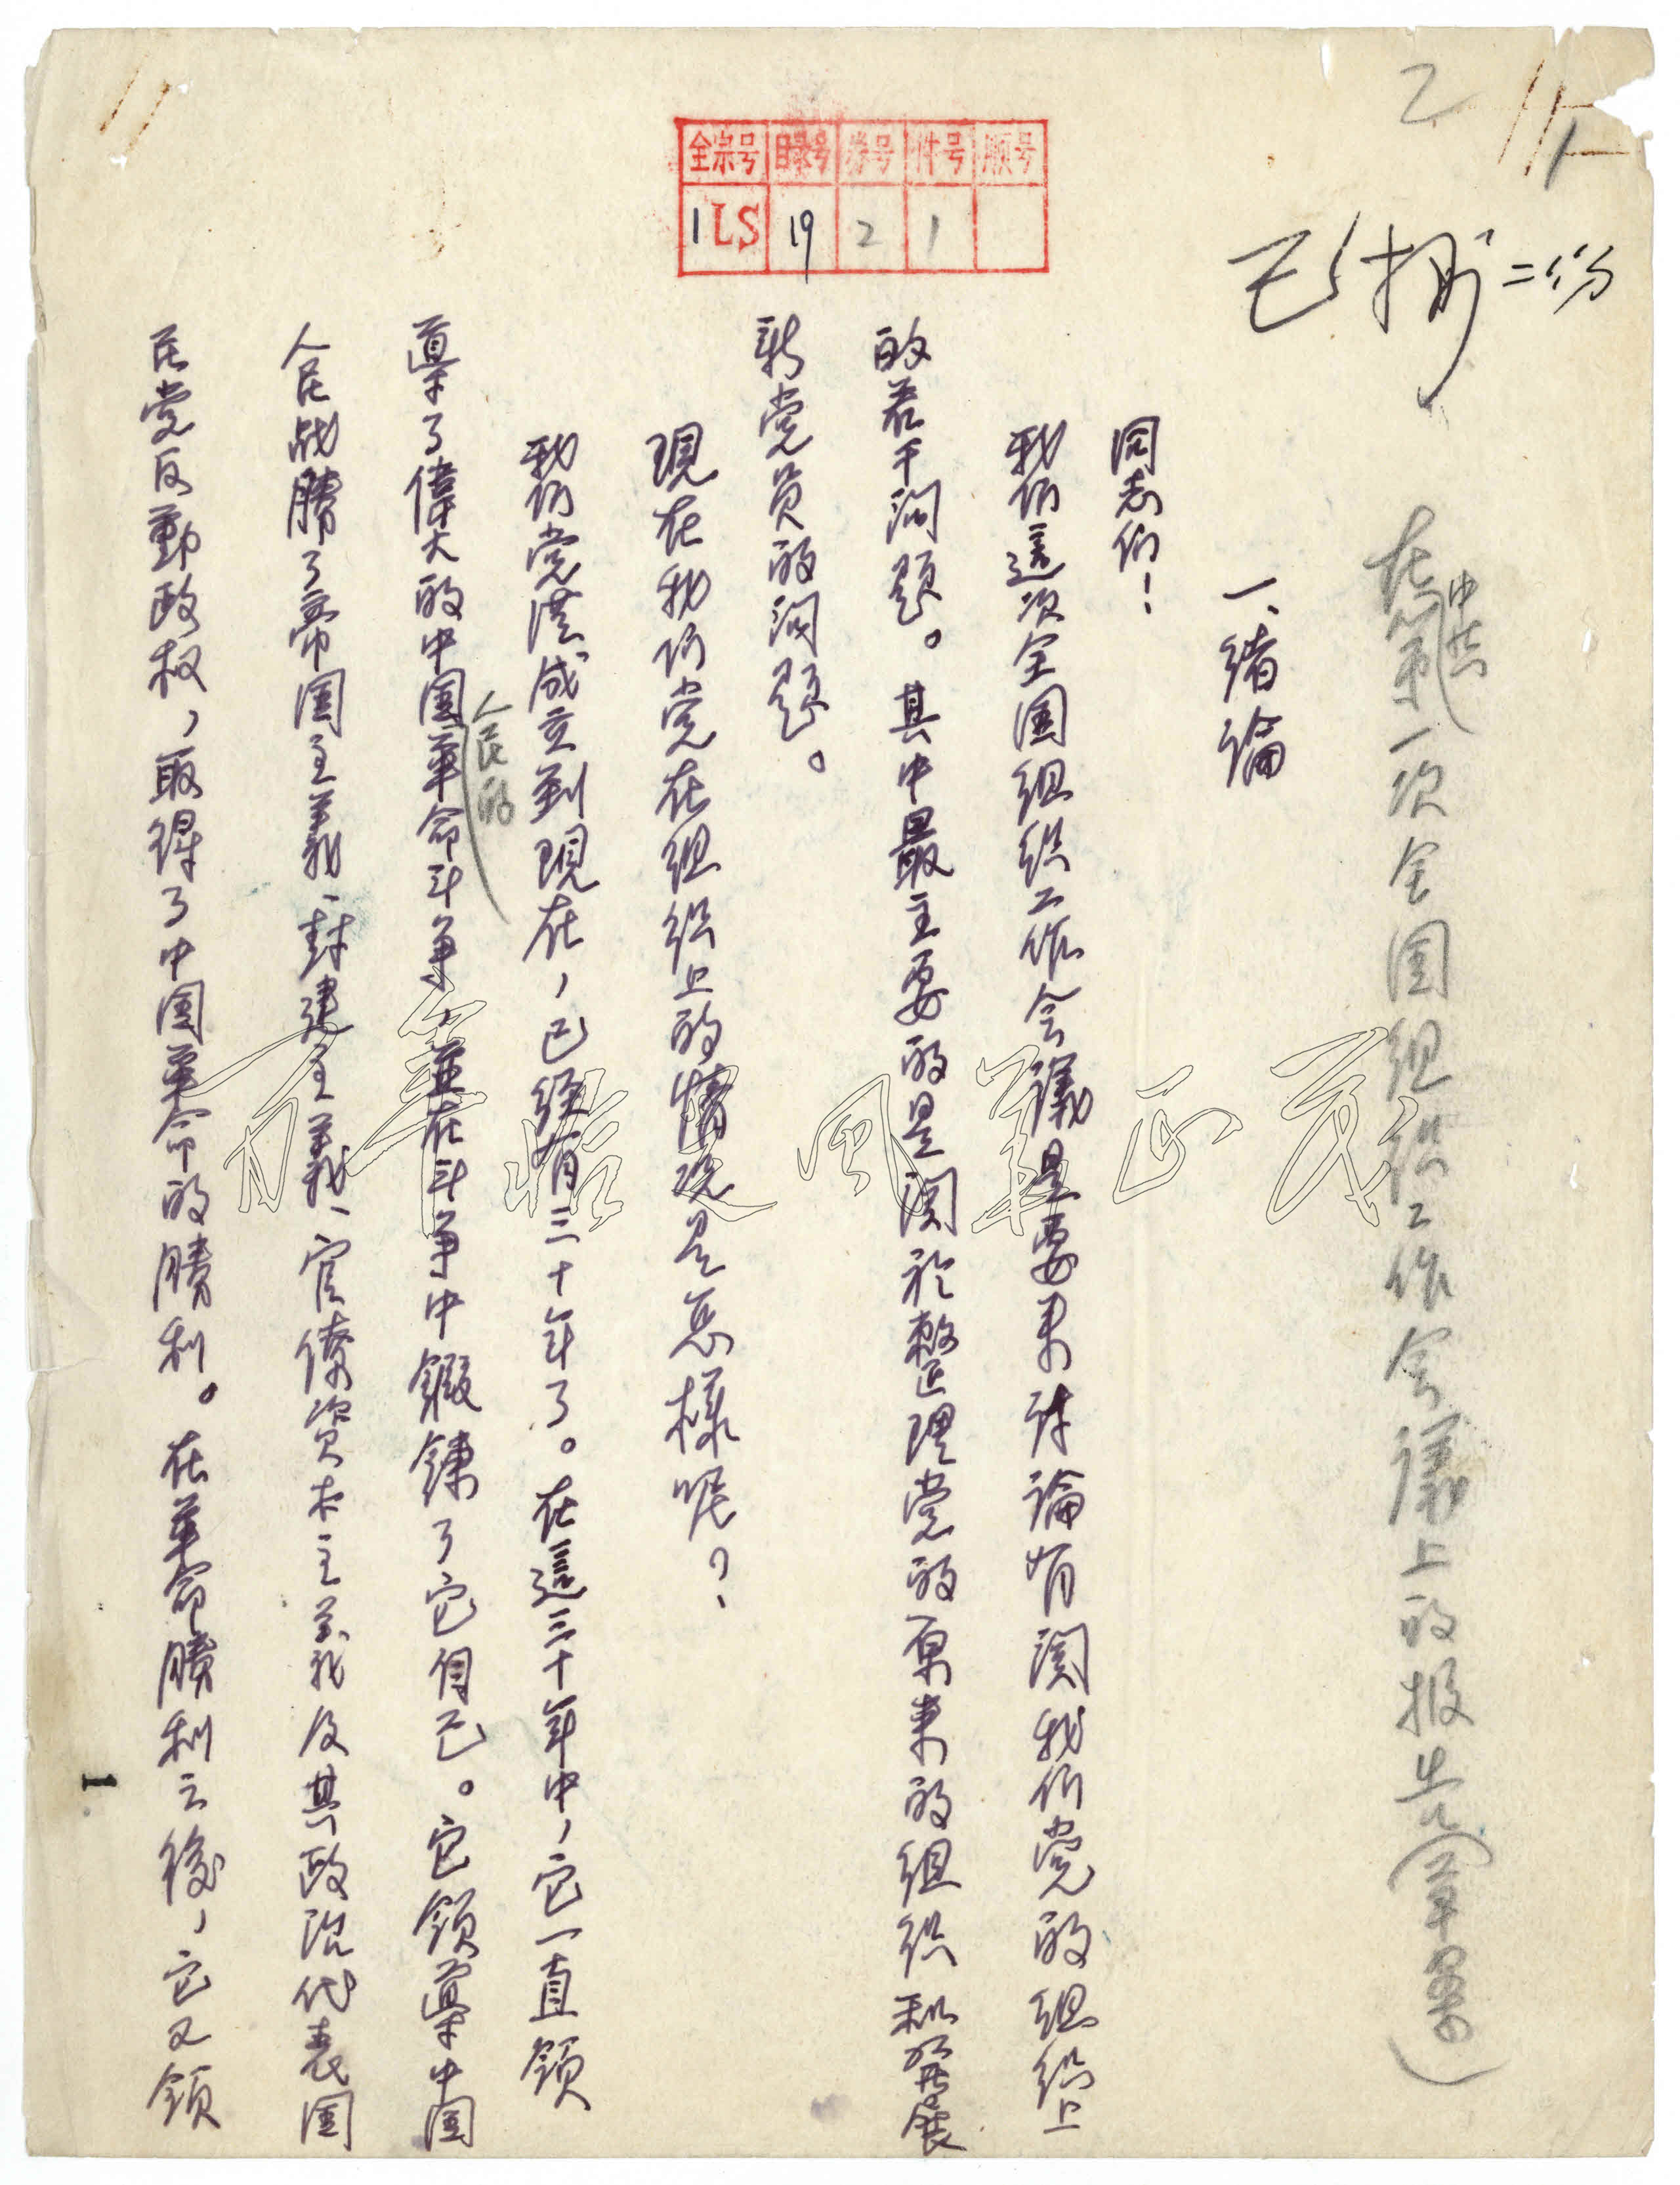 全宗号 目录号 卷号 件号 顺号
1LS 19 2 1
乙
1
二份
在中共第一次全国组织工作会議上的报告(草稿)
一、緒論
同志们!
我们這次全国组织工作会議是要来討論有関我们党的组织上
的若干问题。其中最主要的是関於整理党的原来的组织和發展
新党员的问题。
現在我们党在组织上的情况是怎樣呢?
我们党從成立到現在,已经有三十年了。在這三十年中,它一直領
導了偉大的中国人民的革命斗争,並在斗争中鍛鍊了它自己。它領導中国
人民战勝了帝国主義、封建主義、官僚資本主義及其政治代表国
民党反動政权,取得了中国革命的勝利。在革命勝利之後,它又領
1